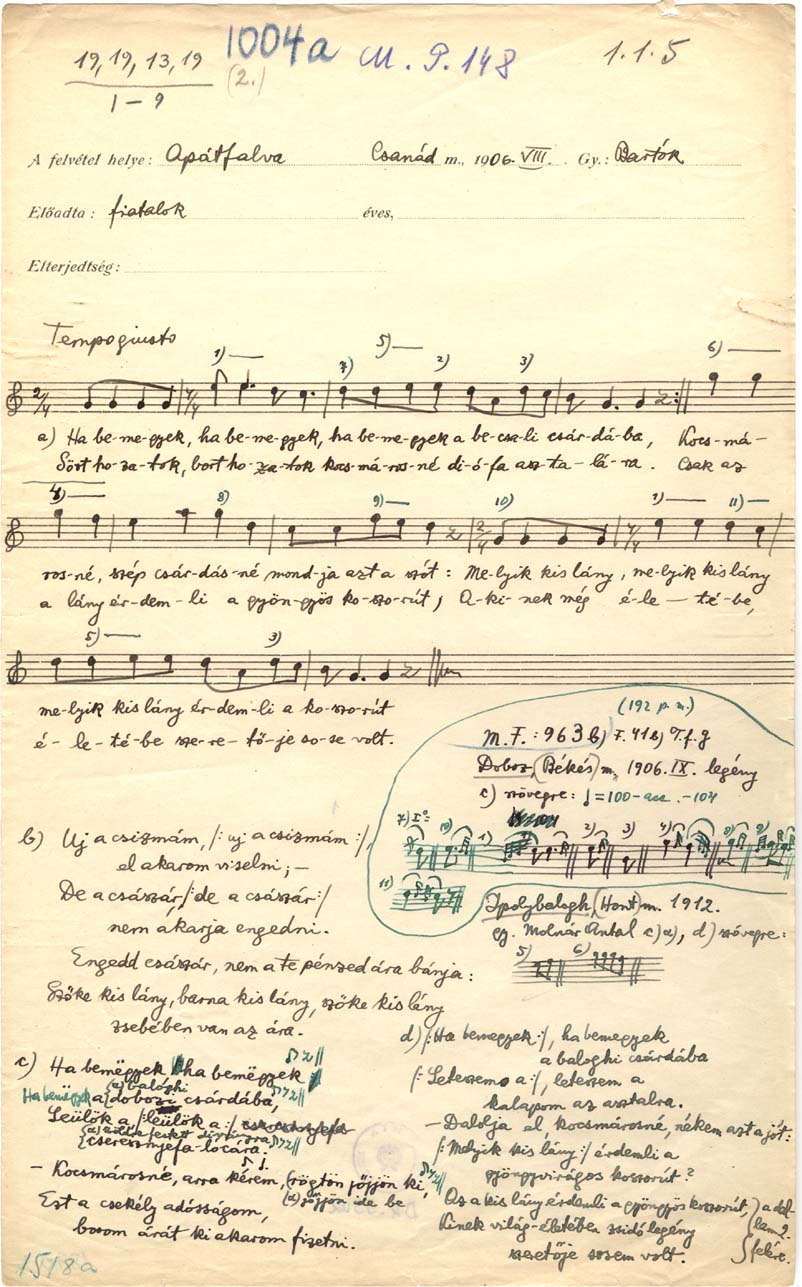 19, 19, 13, 19 1004a M. P. 148 1.1.5
1-9 (2.)
A felvétel helye: Apátfalva Csanád m., 1906. VIII. Gy.: Bartók
Előadta: fiatalok éves,
Elterjedtség:
Tempo giusto
1) 7) 5) 2) 3) 6)
2/4 4/4
a) Ha be-me-gyek, ha be-me-gyek, ha be-me-gyek a be-csa-li csár-dá-ba, Kocs-má-
Sört ho-za-tok, bort ho-za-tok kocs-má-ros-né di-ó-fa asz-ta-lá-ra. Csak az
4) 8) 9) 10) 1) 11)
2/4 4/4
ros-né, szép csár-dás-né mond-ja azt a szót: Me-lyik kis lány, me-lyik kis lány
a lány ér-dem-li a gyön-gyös ko-szo-rút, A-ki-nek még é-le-té-be,
5) 3)
me-lyik kis lány ér-dem-li a ko-szo-rút
é-le-té-be sze-re-tő-je so-se volt.
(192 p. m.)
M. F.: 963 b) F. 41 b) T. f. g
Doboz, (Békés) m. 1906. IX. legény
c) szövegre: ♩=100-acc.-104
7) I° 10) 1) 2) 3) 4) 8) 9)
11)
Ipolybalogh, (Hont) m. 1912.
gy. Molnár Antal c) a), d) szövegre:
5) 6)
b) Uj a csizmám, /: uj a csizmám :/,
el akarom viselni; –
De a császár, /: de a császár :/
nem akarja engedni.
Engedd császár, nem a te pénzed ára bánja:
Szőke kis lány, barna kis lány, szőke kis lány
zsebében van az ára.
c) Ha bemëgyek ha bemëgyek
(a) balóghi
Ha bemëgyek a dobozi csárdába,
Leülök a /: leülök a :/
cseresznyefa-lócára.
– Kocsmárosné, arra kérem, rögtön jőjjön ki,
(a) jőjjön ide be
Ezt a csekély adósságom,
borom árát ki akarom fizetni.
d) /: Ha bemegyek :/, ha bemegyek
a baloghi csárdába
/: Leteszem a :/, leteszem a
kalapom az asztalra.
– Dalolja el, kocsmárosné, nékem azt a jót:
/: Melyik kis lány :/ érdemli a
gyöngyvirágos koszorút?
Az a kis lány érdemli a gyöngyös koszorút,
Kinek világ-életében zsidó legény
szeretője sosem volt.
a dallam 2. felére.
1518a